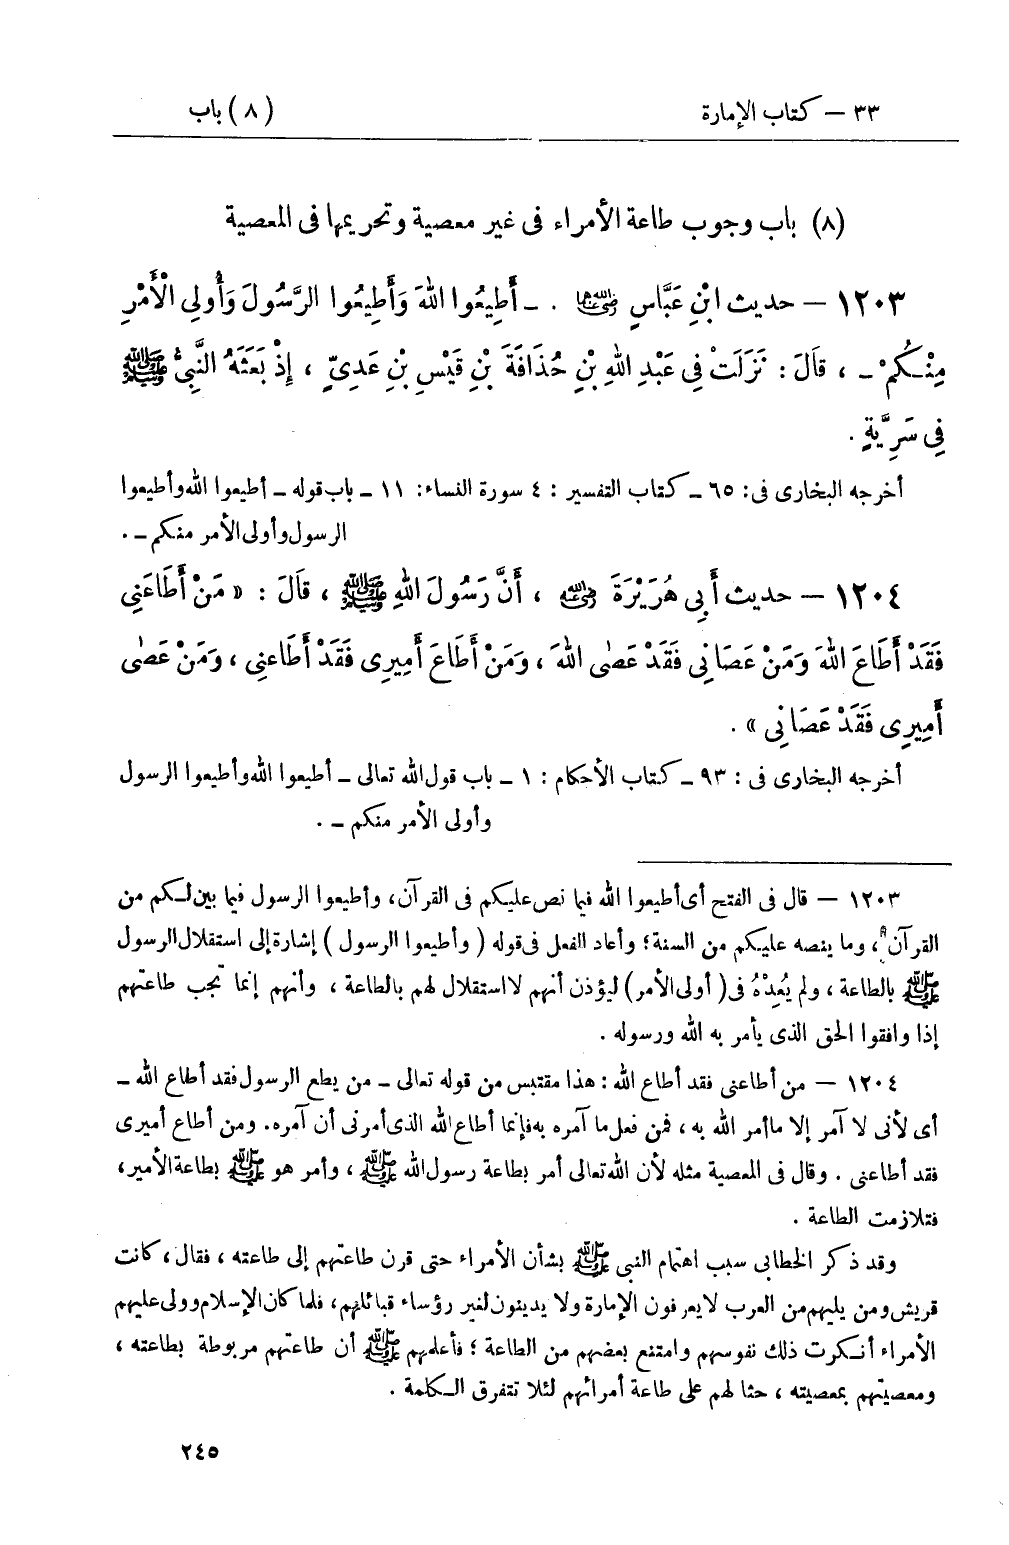 ٣٣ – كتاب الإمارة
(٨) باب
(٨) باب وجوب طاعة الأمراء فى غير معصية وتحريمها فى المعصية
١٢٠٣ – حديث ابْنِ عَبَّاسٍ رضي الله عنهما . ـ أَطِيعُوا اللهَ وَأَطِيعُوا الرَّسُولَ وَأُولِى الْأَمْرِ
مِنْكُمْ ـ ، قَالَ : نَزَلَتْ فِي عَبْدِ اللهِ بْنِ حُذَافَةَ بْنِ قَيْسِ بْنِ عَدِىٍّ ، إِذْ بَعَثَهُ النَّبِىُّ ﷺ
فِى سَرِيَّةٍ .
أخرجه البخارى فى : ٦٥ ـ كتاب التفسير : ٤ سورة النساء : ١١ ـ باب قوله ـ أطيعوا الله وأطيعوا
الرسول وأولى الأمر منكم ـ .
١٢٠٤ – حديث أَبِي هُرَيْرَةَ رضي الله عنه ، أَنَّ رَسُولَ اللهِ ﷺ ، قَالَ : « مَنْ أَطَاعَنِى
فَقَدْ أَطَاعَ اللهَ وَمَنْ عَصَانِي فَقَدْ عَصَى اللهَ ، وَمَنْ أَطَاعَ أَمِيرِى فَقَدْ أَطَاعنِى ، وَمَنْ عَصَى
أَمِيرِى فَقَدْ عَصَانِى » .
أخرجه البخارى فى : ٩٣ ـ كتاب الأحكام : ١ ـ باب قول الله تعالى ـ أطيعوا الله وأطيعوا الرسول
وأولى الأمر منكم ـ .
١٢٠٣ – قال فى الفتح أى أطيعوا الله فيما نص عليكم فى القرآن، وأطيعوا الرسول فيما بين لكم من
القرآن ، وما ينصه عليكم من السنة؛ وأعاد الفعل فى قوله ( وأطيعوا الرسول ) إشارة إلى استقلال الرسول
ﷺ بالطاعة ، ولم يُعِدْهُ فى ( أولى الأمر ) ليؤذن أنهم لا استقلال لهم بالطاعة ، وأنهم إنما تجب طاعتهم
إذا وافقوا الحق الذى يأمر به الله ورسوله .
١٢٠٤ – من أطاعنى فقد أطاع الله : هذا مقتبس من قوله تعالى ـ من يطع الرسول فقد أطاع الله ـ
أى لأنى لا آمر إلا ما أمر الله به ، فمن فعل ما آمره به فإنما أطاع الله الذى أمرنى أن آمره. ومن أطاع أميرى
فقد أطاعنى . وقال فى المعصية مثله لأن الله تعالى أمر بطاعة رسول الله ﷺ ، وأمر هو ﷺ بطاعة الأمير،
فتلازمت الطاعة .
وقد ذكر الخطابى سبب اهتمام النبى ﷺ بشأن الأمراء حتى قرن طاعتهم إلى طاعته ، فقال ، كانت
قريش ومن يليهم من العرب لا يعرفون الإمارة ولا يدينون لغير رؤساء قبائلهم، فلما كان الإسلام وولى عليهم
الأمراء أنكرت ذلك نفوسهم وامتنع بعضهم من الطاعة ؛ فأعلمهم ﷺ أن طاعتهم مربوطة بطاعته ،
ومعصيتهم بمعصيته ، حثا لهم على طاعة أمرائهم لئلا تتفرق الكلمة .
٢٤٥